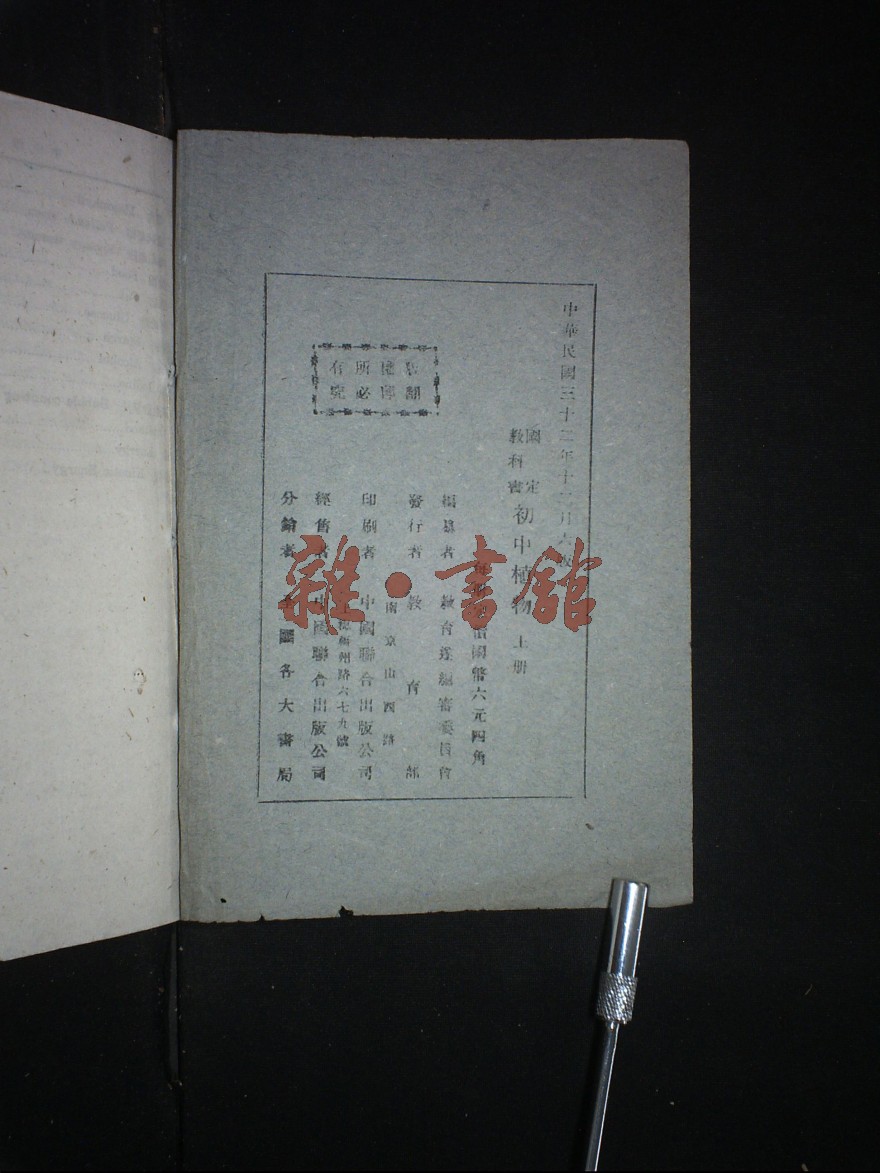 中華民國三十二年十一月六版
國定
教科書
初中植物 上册
每册定價國幣六元四角
編纂者 教育部編審委員會
發行者 教育部
南京山西路
印刷者 中國聯合出版公司
上海福州路六七九號
經售者 中國聯合出版公司
分銷者 全國各大書局
翻
印
所必
有究
雜·書館